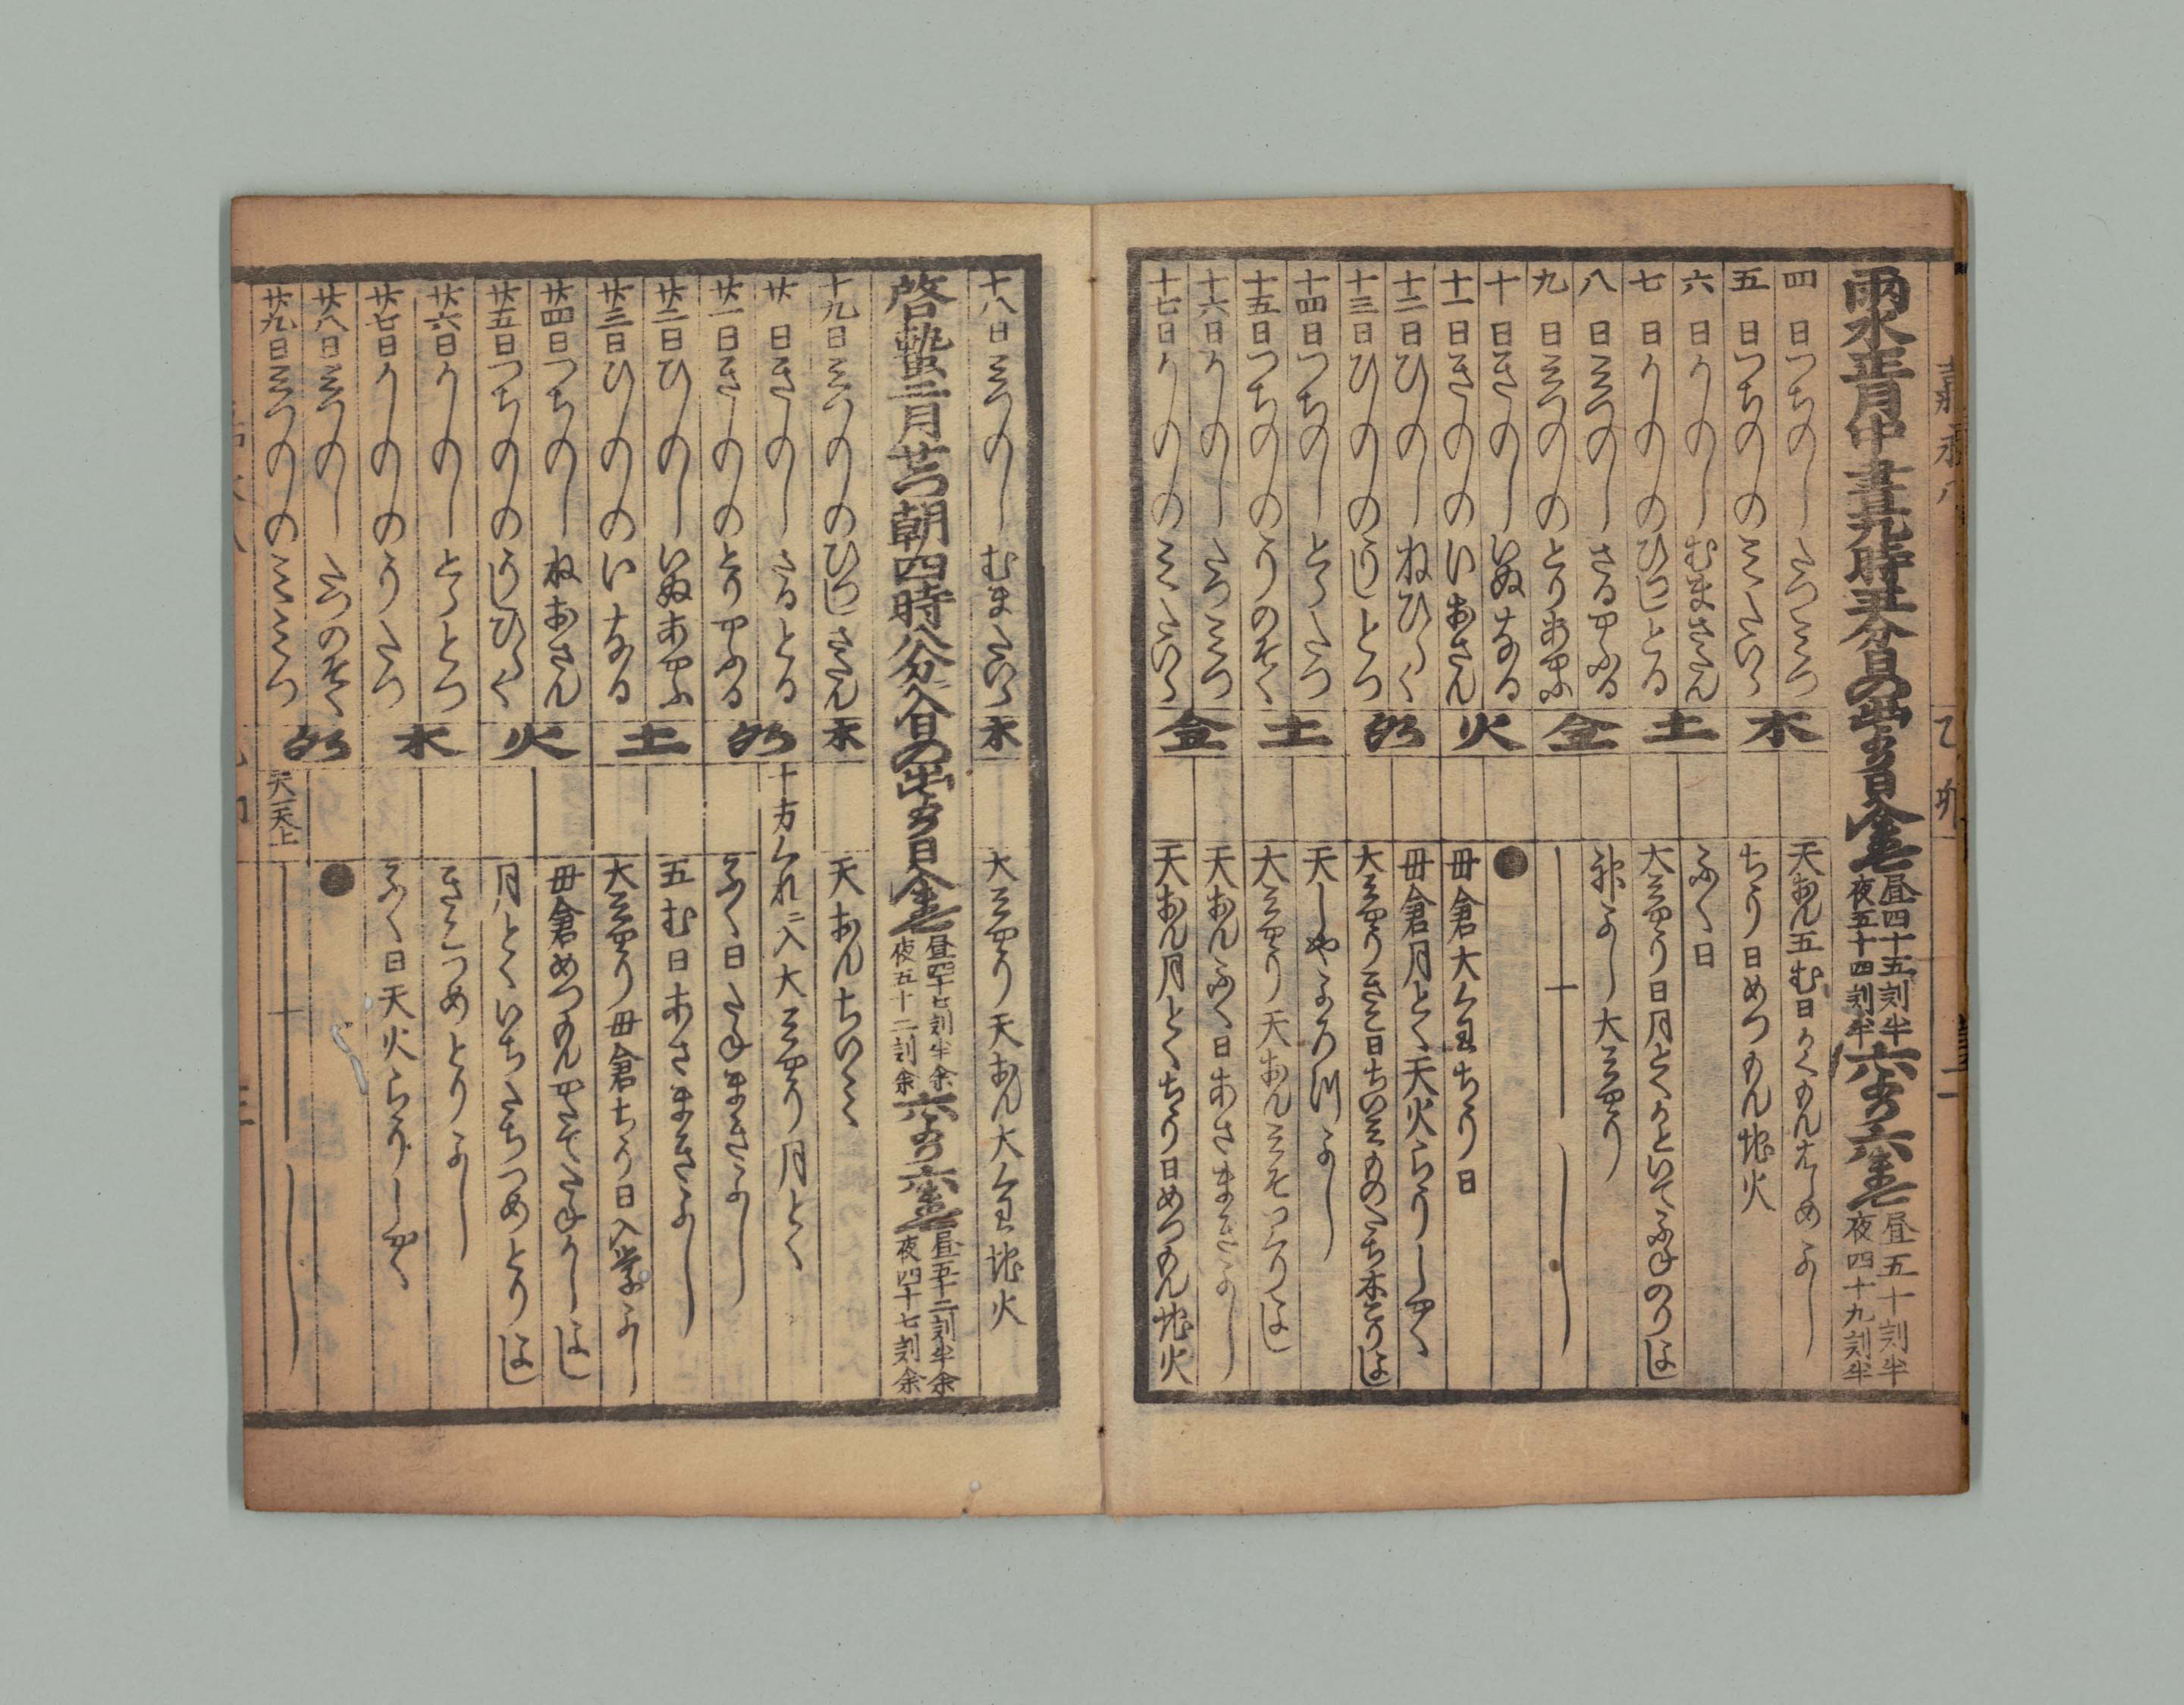 嘉永八 乙卯 二
雨水正月中昼九時五分日の出より日入まで 昼四十五刻半 夜五十四刻半 六より六まで 昼五十刻半 夜四十九刻半
四日つちのえたつみつ 木 天おん五む日かくもんはしめよし
五日つちのとのみたいら ちう日めつもん地火
六日かのえむまさたん 土 ふく日
七日かのとのひつしとる 大みやう日月とくかといてふねのりよし
八日みつのえさるやふる 金 神よし大みやう
九日みつのとのとりあやふ 十
十日きのえいぬなる 火 ●
十一日きのとのいおさん 母倉大くわちう日
十二日ひのえねひらく 水 母倉月とく天火らうしやく
十三日ひのとのうしとつ 大みやうきこ日ちいみものたち木こりよし
十四日つちのえとらたつ 土 天しやよろつよし
十五日つちのとのうのそく 大みやう天おんみそつくりよし
十六日かのえたつみつ 金 天おんふく日あさまきよし
十七日かのとのみたいら 天おん月とくちう日めつもん地火
十八日みつのえむまたいら 木 大みやう天おん大くわ地火
啓蟄二月せつ朝四時八分入日の出より日入まで 昼四十七刻半余 夜五十二刻余 六より六まで 昼五十二刻半余 夜四十七刻余
十九日みつのとのひつしさたん 木 天おんちいみ
廿日きのえさるとる 水 十方くれニ入大みやう月とく
廿一日きのとのとりやふる ふく日たねまきよし
廿二日ひのえいぬあやふ 土 五む日あさまきよし
廿三日ひのとのいなる 大みやう母倉ちう日入学よし
廿四日つちのえねおさん 火 母倉めつもんやさてたねかしよし
廿五日つちのとのうしひらく 月とくいちたちつめとりよし
廿六日かのえとらとつ 木 きこつめとりよし
廿七日かのとのうたつ ふく日天火らうしやく
廿八日みつのえたつのそく 水 ●
廿九日みつのとのみみつ 天一天上 十